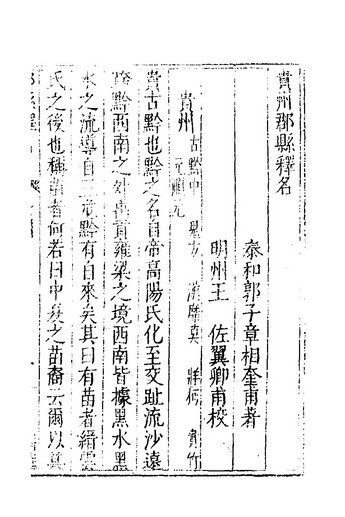 貴州郡縣釋名
泰和郭子章相奎甫著
明州王 佐翼卿甫校
貴州 古黔中 鬼方 漢牂 貴竹
貴古黔也黔之名自帝高陽氏化至交趾流沙遠
跨黔西南之外禹貢雍梁之境西南皆據黑水黑
水之流導自三危黔有自來矣其曰有苗者縉雲
氏之後也稱苗者何若曰中夏之苗裔云爾以莫